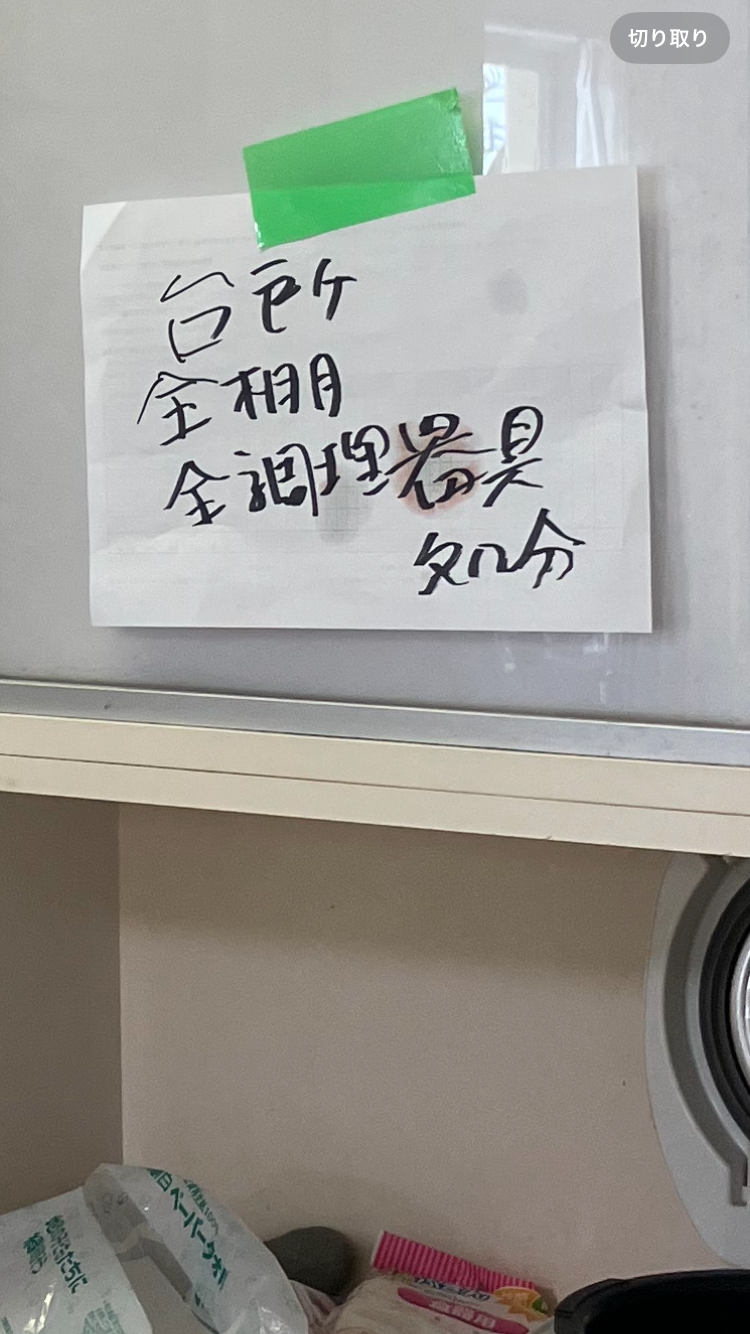 切り取り
台所
全棚
全調理器具
処分
ペーパータオル